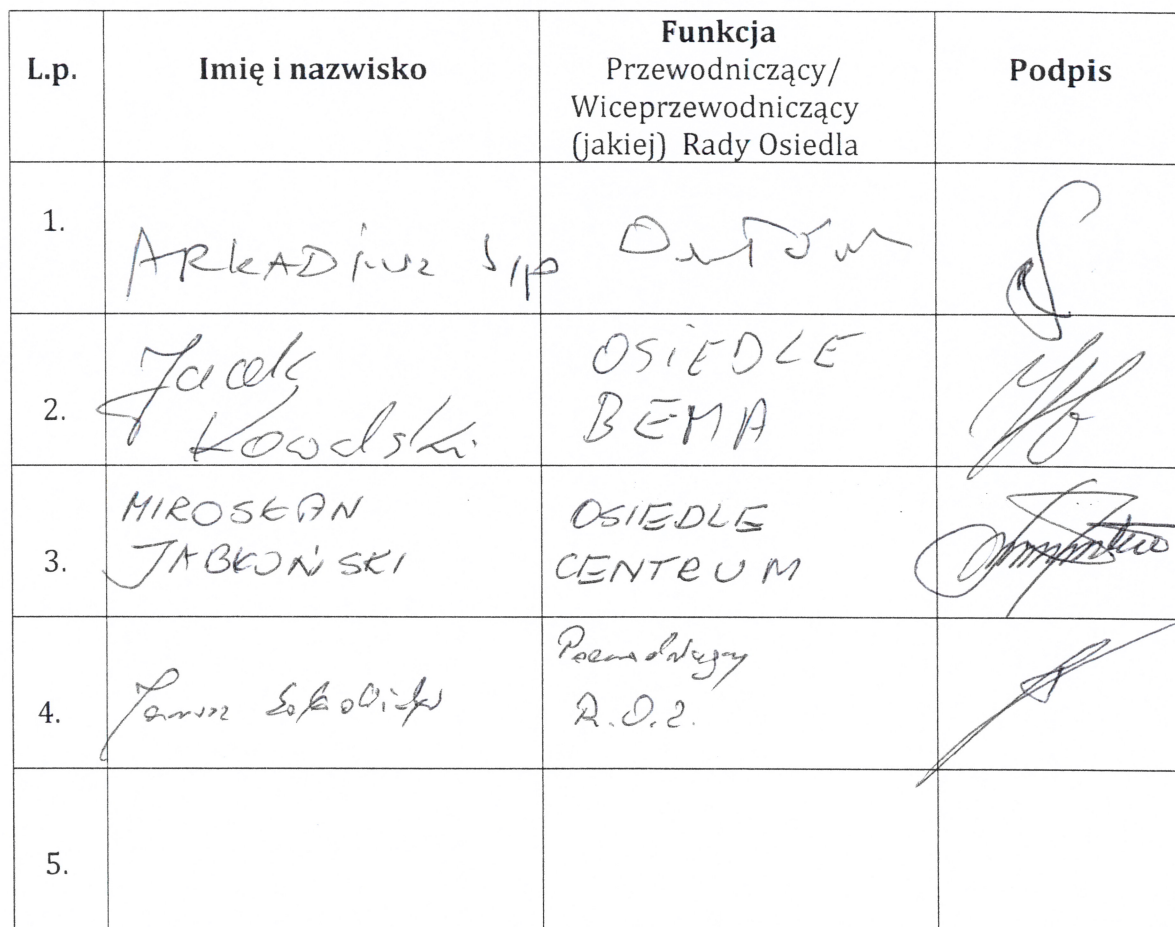 L.p.
Imię i nazwisko
Funkcja
Przewodniczący/
Wiceprzewodniczący
(jakiej) Rady Osiedla
Podpis
1.
ARKADIUSZ
2.
Jacek
Kowalski
OSIEDLE
BEMA
3.
MIROSŁAW
JABŁOŃSKI
OSIEDLE
CENTRUM
4.
Janusz
R.O.
5.